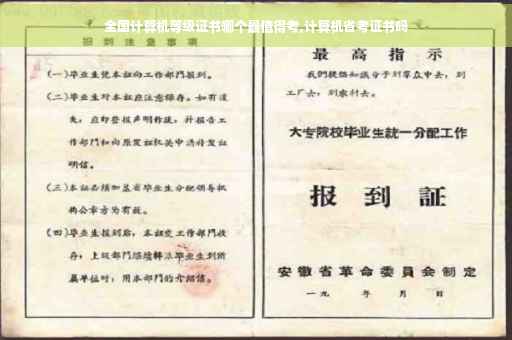 全国计算机等级证书哪个最值得考,计算机省考证书吗
报到注意事项
(一)毕业生凭本证向工作部门报到。
(二)毕业生对本证应注意保存。如有遗
失,应即登报声明作废,并报告工
作部门和向原发证机关申请补发证
明信。
(三)本证必须加盖省毕业生分配领导机
构公章方为有效。
(四)毕业生报到后,本证交工作部门收
存;上级部门继续转派毕业生到所
属单位时,用本部门的介绍信。
最高指示
我们提倡知识分子到群众中去,到
工厂去,到农村去。
大专院校毕业生统一分配工作
报到証
安徽省革命委員会制定
一九 年 月 日